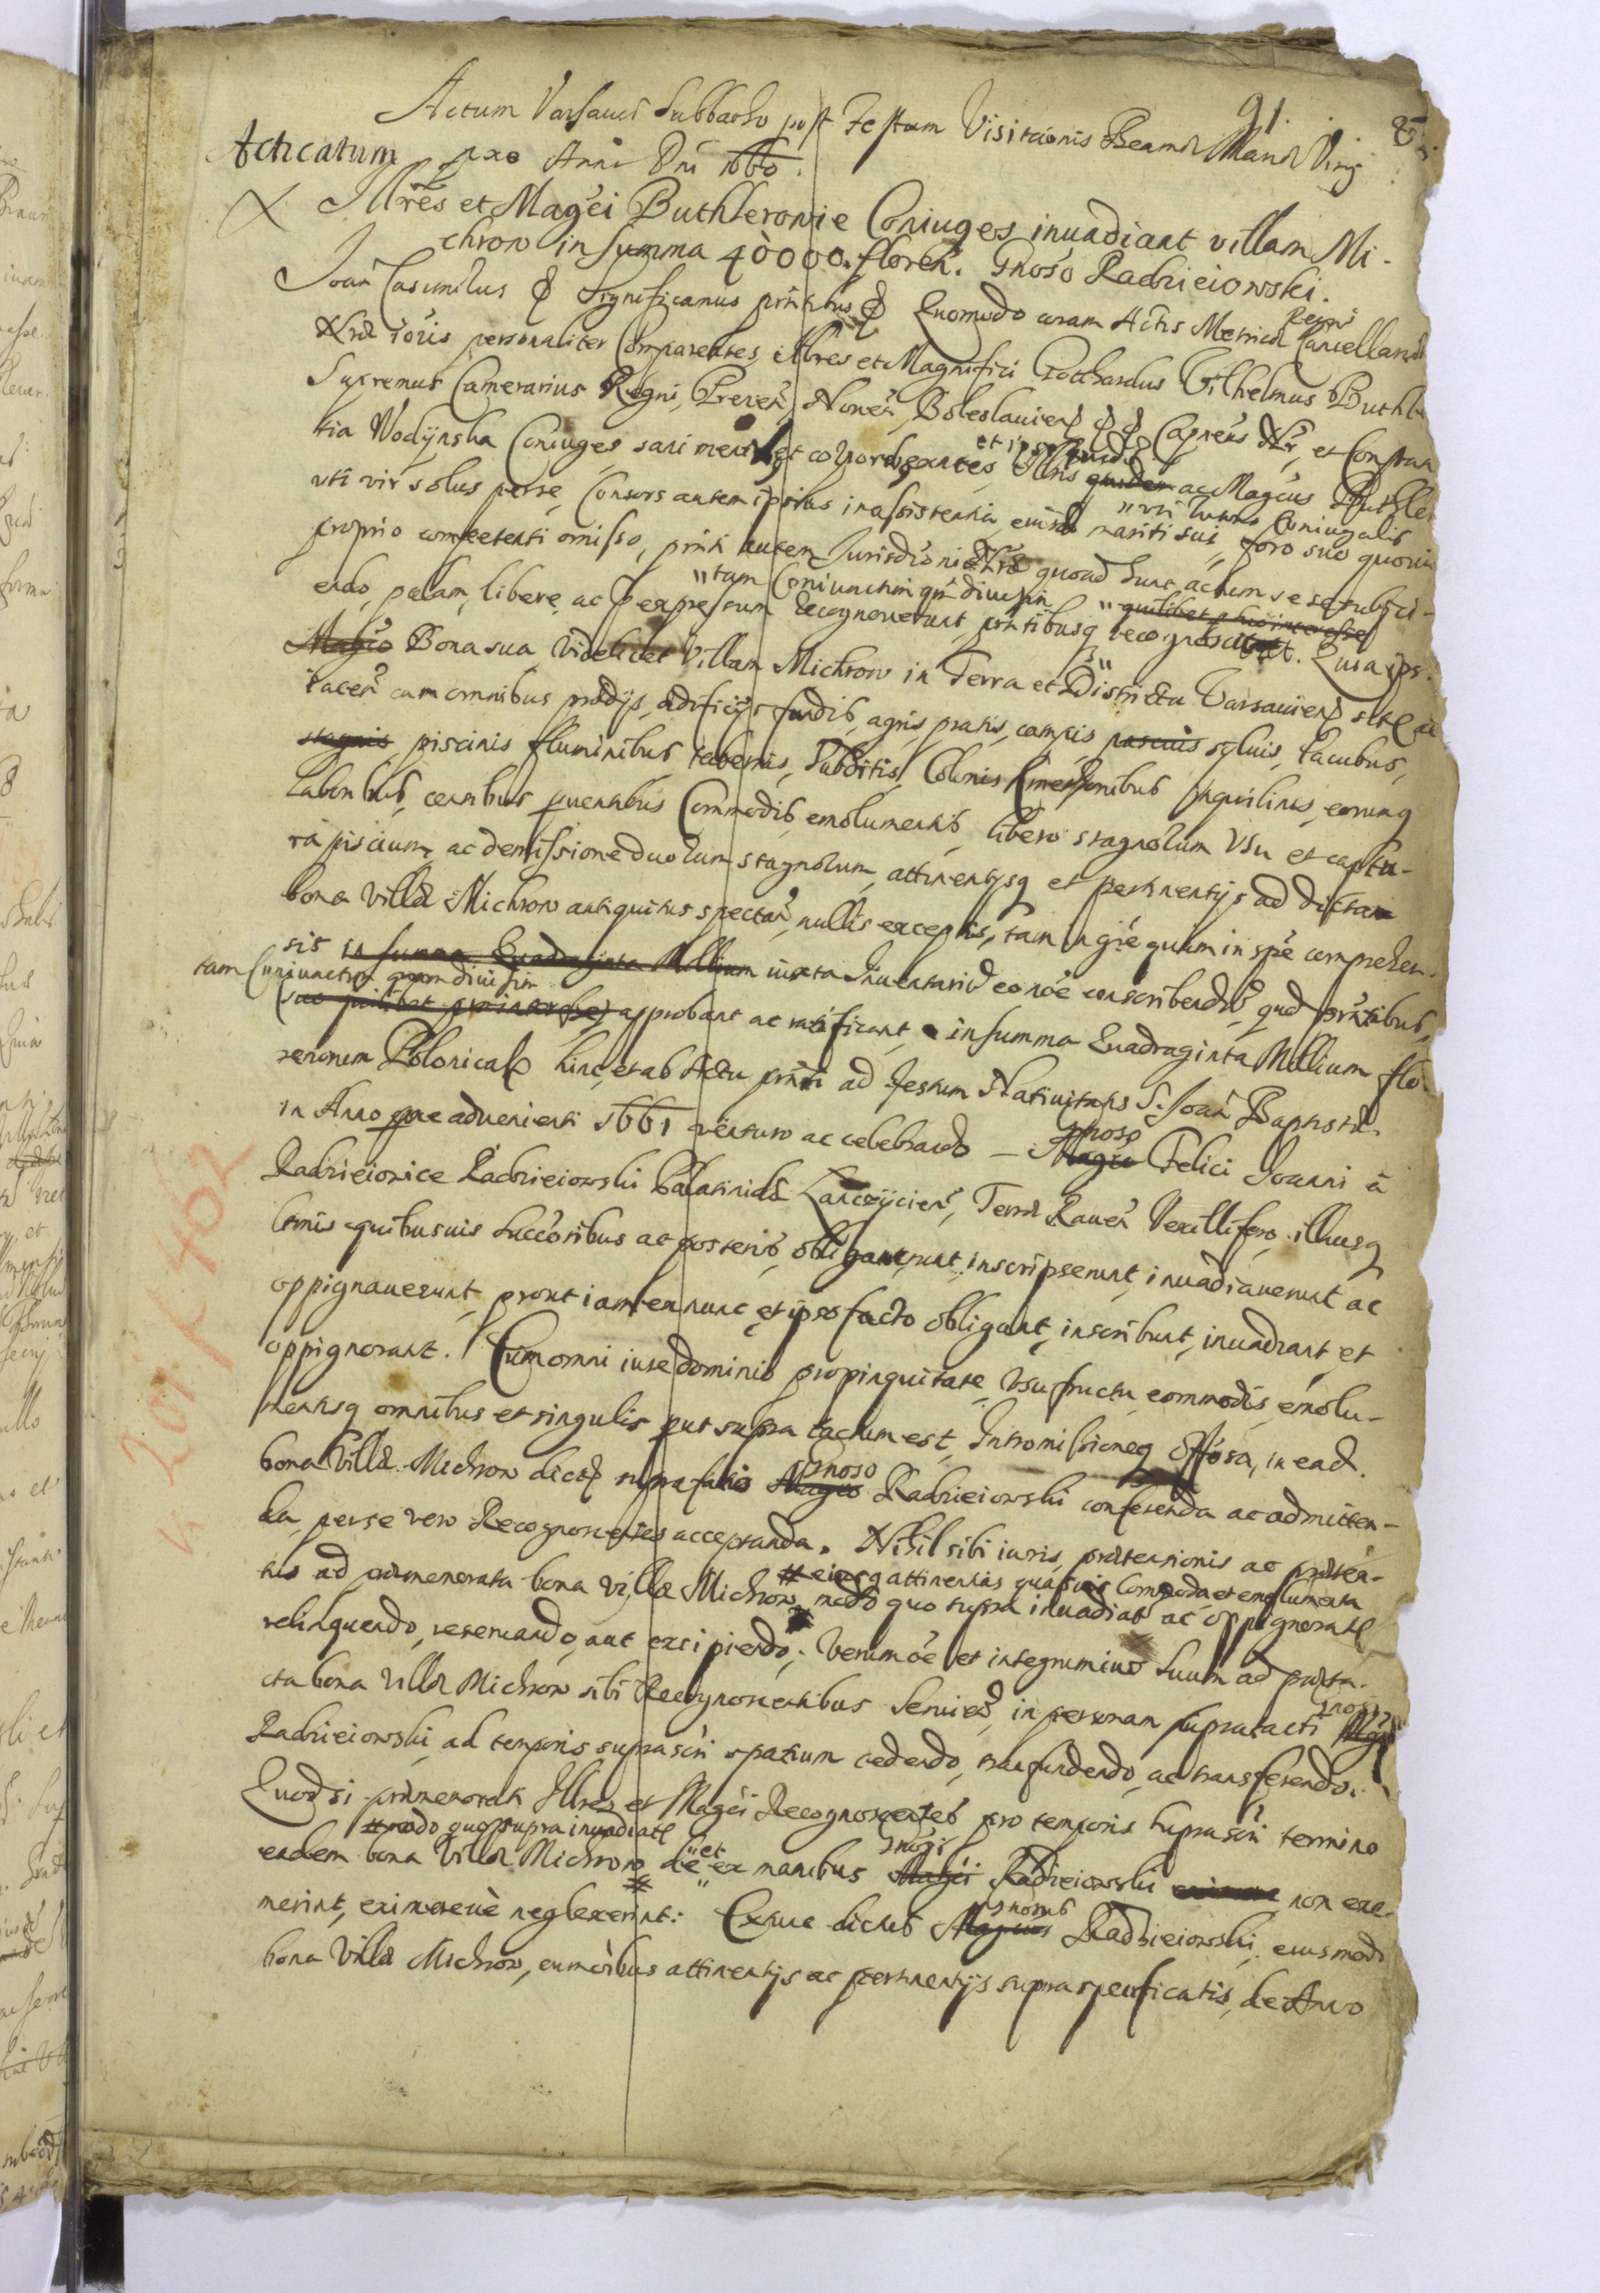 91. 85
Actum Varsaviæ Sabbatho post Festum Visitãonis Beatæ Mariæ Virg
Acticatum pxo Anni Dni 1660.
X Illres et Magci Buthlerowie Coniuges inuadiant villam Mi-
chrow in summa 40000. floren. Gnoso Radzieiowski.
Joan Casimirus & Significamus prntibus & Quomodo coram Actis Metricæ Regni Cancellariæ
Nræ Maioris personaliter Comparentes, Illres et Magnifici Gotthardus Vilhelmus Buthle
Supremus Camerarius Regni, Preuen, Noven, Boleslauien & & Capneus Nr, et Constan
tia Wodÿnska Coniuges sani mente et corpore existentes, Illris quidem ac Magcus Buthler
uti vir solus per se, Consors autem ipsius in assistentia eiusd mariti sui uti tutoris Coniugalis, foro suo quouis
proprio competenti omisso, prnti autem Jurisdioni Nræ quoad hunc actum se se subijci-
endo, palam, libere, ac per expressum tam Coniunctim qm diuisim recognouerunt, prntibusq recognoscunt. Quia ips.
Magco Bona sua, videlicet Villam Michrow in Terra et Districtu Varsauien sitæ ac
iacen cum omnibus prædijs, ædificijs, fundis, agris, pratis, campis pascuis syluis, lacubus,
stagnis piscinis fluminibus tabernis, Subditis, Colonis Cmethonibus Inquilinis, eorumq
laboribus, censibus prouentibus Commodis, emolumentis, libero stagnolum Usu et captu-
ra piscium, ac demissione duolum stagnolum, attinentijsq et pertinentijs ad dictam
bona Villæ Michrow antiquitus spectan, nullis exceptis, tam in gñe quam in spe comprehen-
sis in summa Quadraginta Millium iuxta Inuentariũ eo noe conscribendũ, quod prntibus,
tam Coniunctim quam diuisim
(uti quilibet pro interesse) approbant ac ratificant, in summa Quadraginta Millium flo-
renorum Polonicał hinc, et ab Actu prnti ad Festum Natiuitatis S. Joan Baptistæ
in Anno proxe aduenienti 1661 venturo ac celebrando – Magco Gnoso Felici Joanni a
Radzieiowice Radzieiowski Palatinidæ Łanczÿcien, Terræ Rauen Vexillifero, illiusq
lemis quibusuis Succoribus ac posteris, obligauerunt, inscripserunt, inuadiauerunt ac
oppignauerunt, prout iam ex nunc et ipso facto obligant, inscribunt, inuadiant et
oppignorant. Cum omni iure dominio propinquitate, Usufructu, commodis, emolu-
mentisq omnibus et singulis put supra tactum est, Intromissioneq Offosa, in ead.
bona Villæ Michrow dictæ suprafato Magco Gnoso Radzieiowski conferenda ac admitten-
da, per se vero Recognoscentes acceptanda. Nihil sibi iuris, prætensionis ac præten-
tus ad præmemorata bona villæ Michrow # eiusq attinentias quasuis Commoda et emolumenta modo quo supra inuadiat ac oppignorat
relinquendo, reseruando, aut excipiendo; Verum oe et integrum ius Suum ad præta-
cta bona Villæ Michrow sibi Recognoscentibus Seruien, in personam supratacti Gnosi Magci
Radzieiowski, ad temporis suprascri spatium cedendo, transfundendo, ac transferendo.
Quodsi præmemorati Illres et Magci Recognoscentes pro temporis suprascri termino
# modo quo supra inuadiat
eadem bona Villæ Michrow de et ex manibus Magci Gnosi Radzieiowski non exe-
merint, eximereue neglexerint: Extunc dictus Magcus Gnosus Radzieiowski, eiusmodi
bona Villæ Michrow, cum oibus attinentijs ac pertinentijs supra specificatis, de Anno